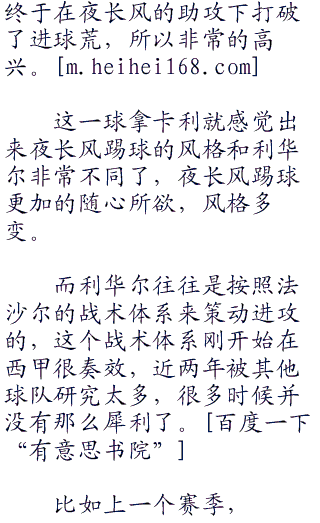 终于在夜长风的助攻下打破
了进球荒，所以非常的高
兴。[m.heihei168.com]
这一球拿卡利就感觉出
来夜长风踢球的风格和利华
尔非常不同了，夜长风踢球
更加的随心所欲，风格多
变。
而利华尔往往是按照法
沙尔的战术体系来策动进攻
的，这个战术体系刚开始在
西甲很奏效，近两年被其他
球队研究太多，很多时候并
没有那么犀利了。[百度一下
“有意思书院”]
比如上一个赛季，